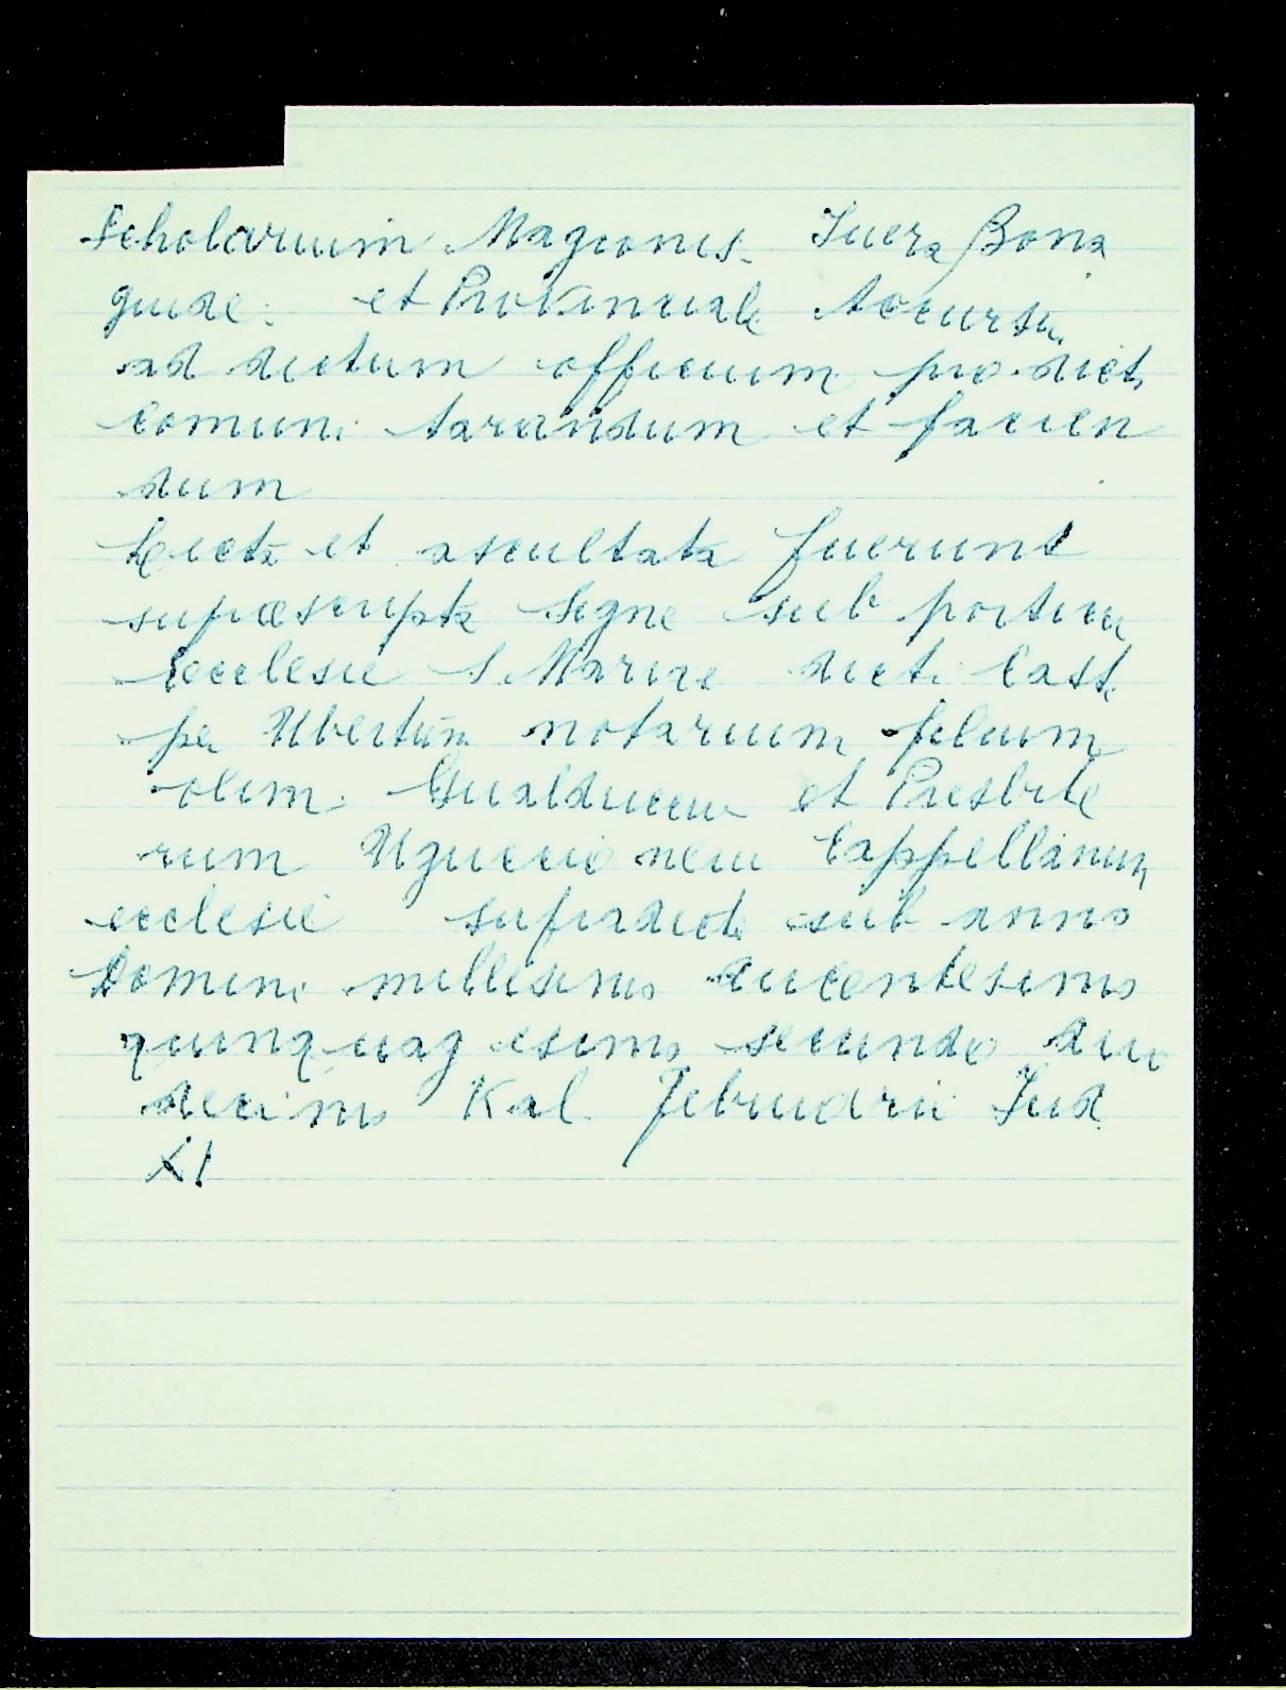 Scholarium Magionis. Iuera Bona
guide. et Provinciale Accursii
ad dictum officium pro dict.
comuni tarandum et facien
dum
Lecta et ascultata fuerunt
suprascripta Segne sub porticu
Ecclesie S. Marie dicti Cast.
per Ubertum notarium filium
olim Gualducciu et Presbite
rum Uguccionem Cappellanum
ecclesie supradicte sub anno
Domini millesimo ducentesimo
quinquagesimo secundo duo
decimo Kal. Februarii Ind.
XI